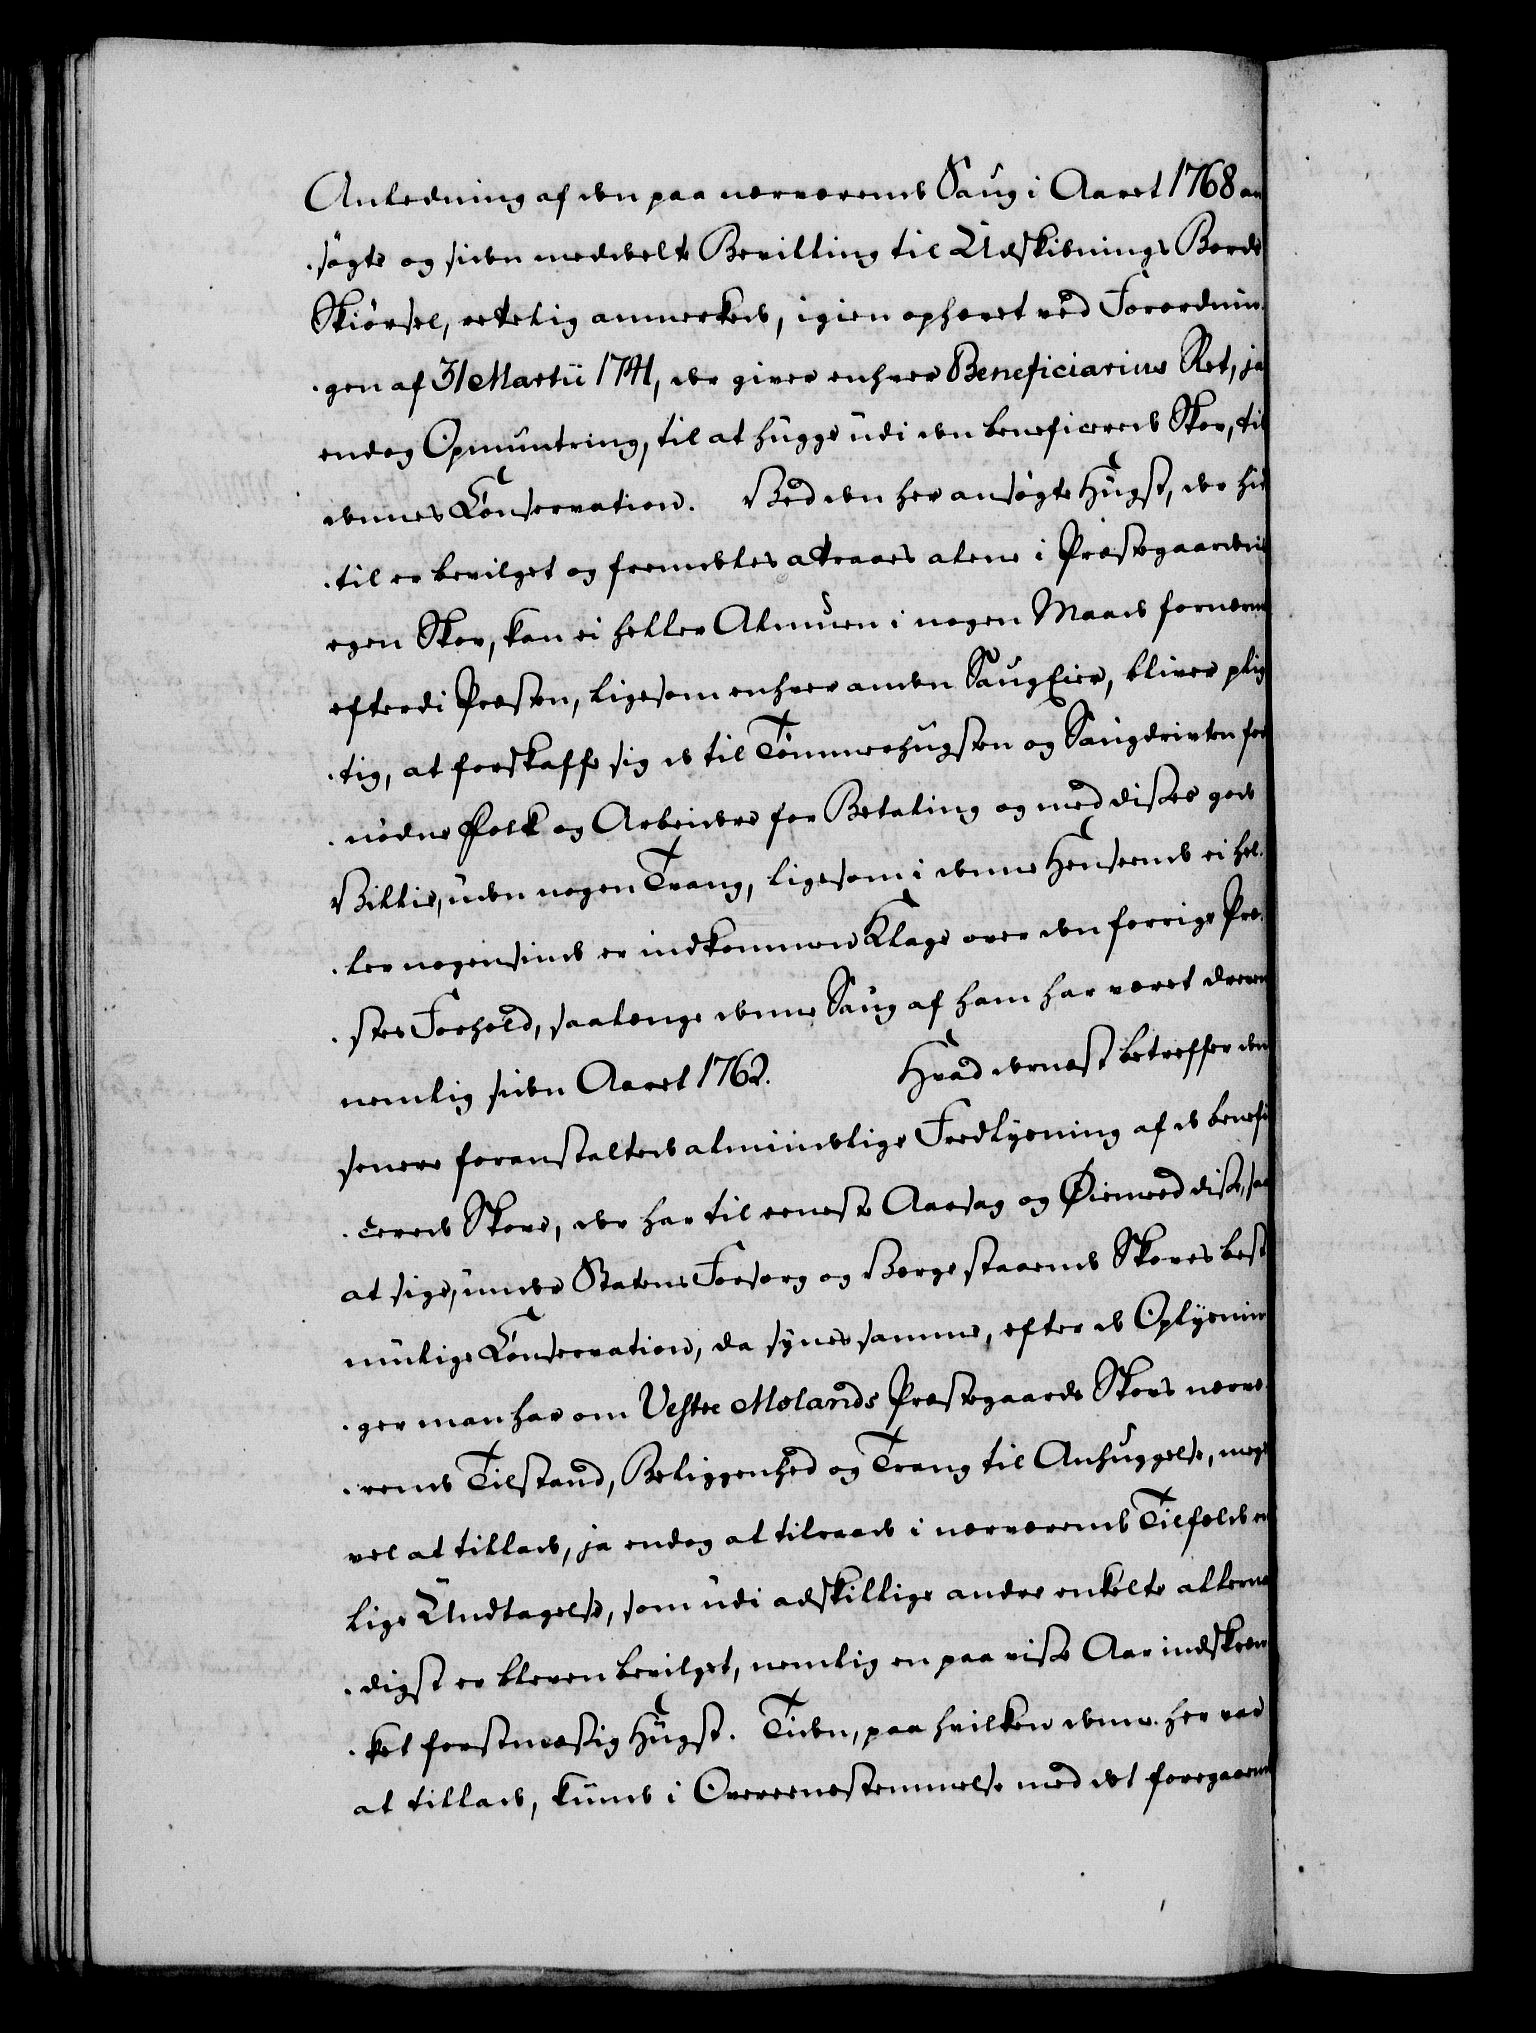 Anledning af den paa nærværende Saug i Aaret 1768 an
søgte og siden meddeelte Bevilling til Udskibnings Bords
Skiørsel, retelig anmerkede, igien ophævet ved Forordnin¬
gen af 31 Martii 1741, der giver enhver Beneficiarius Ret, ja
endog Opmuntring, til at hugge udi den beneficerede Skov, til
dennes Conservation. Ved den her ansøgte Hugst, der hid
til er bevilget og fremdeles attraaes alene i Præstegaardens
egen Skov, kan ei heller Almuen i nogen Maade fornærm
efterdi Præsten, ligesom enhver anden SaugEier, bliver plig
tig, at forskaffe sig de til Tømmerhugsten og Saugdriften for
nødne Folk og Arbeidere for Betaling og med disses gode
Villie, uden nogen Tvang, ligesom i denne Henseende ei hel¬
ler nogensinde er indkommen Klage over den forrige Præ¬
stes Forhold, saalænge denne Saug af ham har været dreven
nemlig siden Aaret 1762. Hvad dernæst betreffer den
senere foranstaltede almindelige Fredlysning af de benefi
cerede Skove, der har til eeneste Aarsag og Øiemeed disse, saa
at sige, under Statens Forsorg og Værge staaende Skoves best
muelige Conservation, da synes samme, efter de Oplysnin
ger man har om Vestre Molands Præstegaards Skovs nærvæ¬
rende Tilstand, Beliggenhed og Trang til Anhuggelse, meget
vel at tillade, ja endog at tilraade i nærværende Tilfælde en
lige Undtagelse, som udi adskillige andre enkelte allerna
digst er bleven bevilget, nemlig en paa visse Aar indskræn
ket forstmæsig Hugst. Tiden, paa hvilken denne her var
at tillade, kunde i Overeenstemmelse med det foregaaende